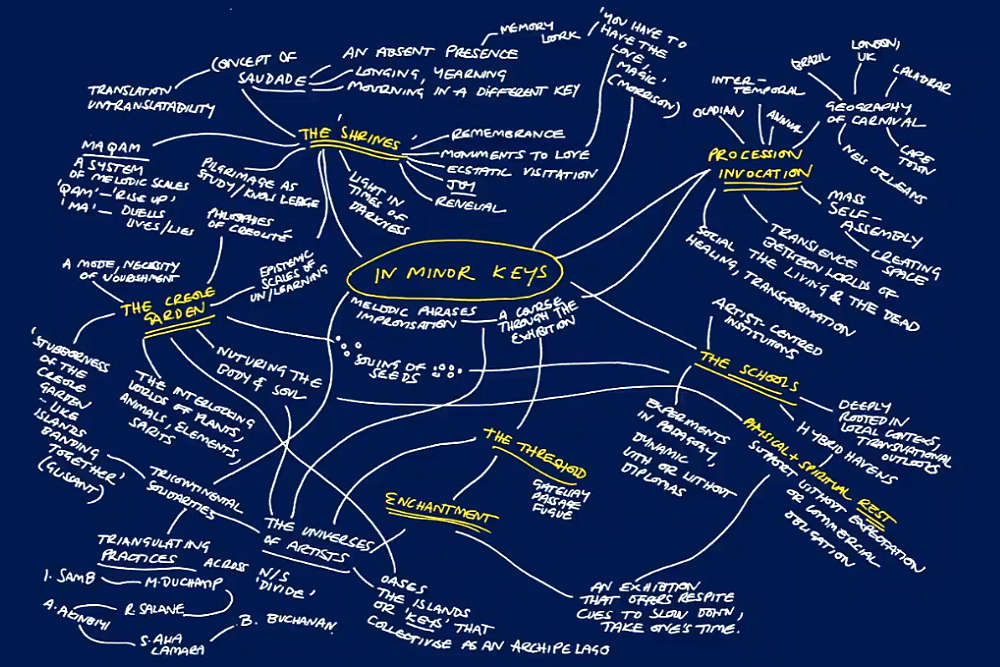 CONCEPT OF
SAUDADE
AN ABSENT PRESENCE
MEMORY
WORK
LONGING, YEARNING
MOURNING IN A DIFFERENT KEY
TRANSLATION
UNTRANSLATABILITY
'YOU HAVE TO
HAVE THE
LOVE,
MAGIC'
(MORRISON)
THE 'SHRINES'
REMEMBRANCE
MONUMENTS TO LOVE
ECSTATIC VISITATION
JOY
RENEWAL
LIGHT IN
TIMES OF
DARKNESS
PILGRIMAGE AS
STUDY/KNOWLEDGE
MAQAM
'A SYSTEM
OF MELODIC SCALES
'QAM' – 'RISE UP'
'MA' – DUELLS
LIVES/LIES
PROCESSION
INVOCATION
OLADIAN
INTER-
TEMPORAL
ANNUAL
GEOGRAPHY
OF CARNIVAL
BRAZIL
LONDON,
UK
CAPE
TOWN
NEW
ORLEANS
MASS
SELF-
ASSEMBLY
CREATING
SPACE
TRANSIENCE
BETWEEN WORLDS OF
THE LIVING & THE DEAD
SOCIAL
HEALING, TRANSFORMATION
IN MINOR KEYS
MELODIC PHRASES
IMPROVISATION
A COURSE
THROUGH THE
EXHIBITION
THE CREOLE
GARDEN
PHILOSOPHIES
OF CREOLITÉ
A MODE, NECESSITY
OF NOURISHMENT
EPISTEMIC
SCALES OF
UN/LEARNING
SOWING OF
SEEDS
NUTURING THE
BODY & SOUL
THE INTERLOCKING
WORLDS OF PLANTS,
ANIMALS, ELEMENTS,
SPIRITS
'STUBBORNESS
OF THE
CREOLE
GARDEN
– LIKE
ISLANDS
BANDING
TOGETHER'
(GLISSANT)
THE SCHOOLS
ARTIST-CENTRED
INSTITUTIONS
EXPERIMENTS
IN PEDAGOGY,
DYNAMIC
WITH OR WITHOUT
DIPLOMAS
HYBRID HAVENS
DEEPLY
ROOTED IN
LOCAL CONTEXT,
TRANSNATIONAL
OUTLOOKS
PHYSICAL + SPIRITUAL REST
SUPPORT WITHOUT EXPECTATION
OR COMMERCIAL
OBLIGATION
AN EXHIBITION
THAT OFFERS RESPITE
CUES TO SLOW DOWN,
TAKE ONE'S TIME.
THE THRESHOLD
GATEWAY
PASSAGE
FUGUE
ENCHANTMENT
THE UNIVERSES
OF ARTISTS
OASES
THE ISLANDS
OR 'KEYS' THAT
COLLECTIVISE AS AN ARCHIPELAGO
TRICONTINENTAL
SOLIDARITIES
TRIANGULATING
PRACTICES
ACROSS N/S
'DIVIDE'
I. SAMB
M. DUCHAMP
A. AKINBIYI
R. SALANE
S. AHA
CAMARA
B. BUCHANAN.